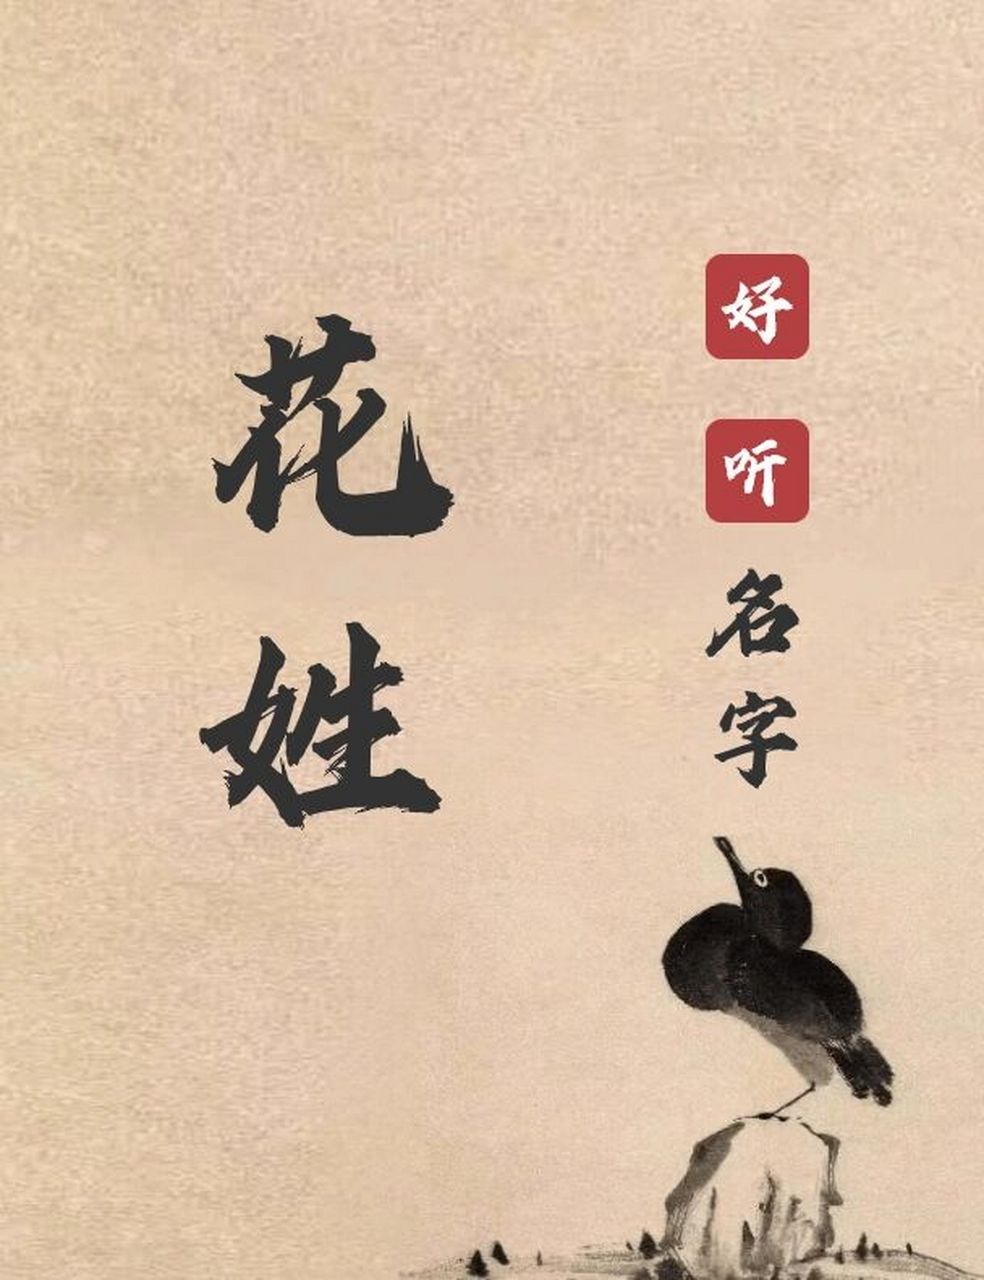 花姓
好听名字